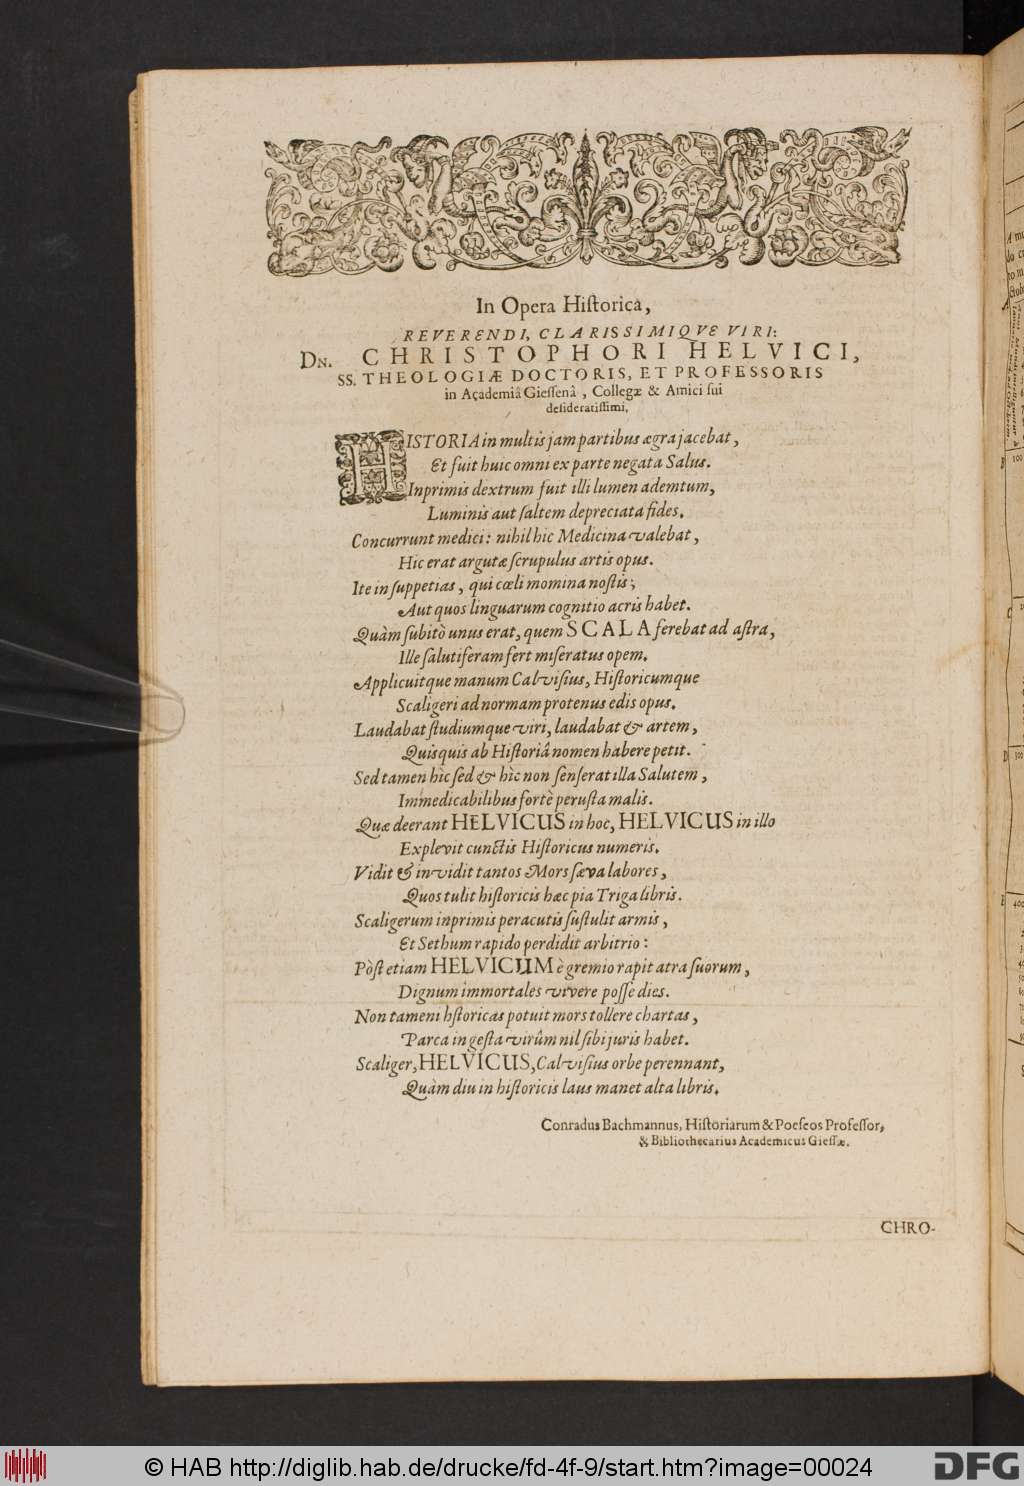 In Opera Historica,
REVERENDI, CLARISSIMIQVE VIRI:
DN. CHRISTOPHORI HELVICI,
SS. THEOLOGIÆ DOCTORIS, ET PROFESSORIS
in Academiâ Giessenâ, Collegæ & Amici sui
desideratissimi,
HISTORIA in multis jam partibus ægra jacebat,
Et fuit huic omni ex parte negata Salus.
Inprimis dextrum fuit illi lumen ademtum,
Luminis aut saltem depreciata fides.
Concurrunt medici: nihil hic Medicina valebat,
Hic erat argutæ scrupulus artis opus.
Ite in suppetias, qui cœli momina nostis;
Aut quos linguarum cognitio acris habet.
Quàm subitò unus erat, quem SCALA ferebat ad astra,
Ille salutiferam fert miseratus opem.
Applicuitque manum Calvisius, Historicumque
Scaligeri ad normam protenus edis opus.
Laudabat studiumque viri, laudabat & artem,
Quisquis ab Historiâ nomen habere petit.
Sed tamen hìc sed & hìc non senserat illa Salutem,
Immedicabilibus fortè perusta malis.
Quæ deerant HELVICUS in hoc, HELVICUS in illo
Explevit cunctis Historicus numeris.
Vidit & invidit tantos Mors sæva labores,
Quos tulit historicis hæc pia Triga libris.
Scaligerum inprimis peracutis sustulit armis,
Et Sethum rapido perdidit arbitrio:
Pòst etiam HELVICUM è gremio rapit atra suorum,
Dignum immortales vivere posse dies.
Non tameni hstoricas potuit mors tollere chartas,
Parca in gesta virûm nil sibi juris habet.
Scaliger, HELVICUS, Calvisius orbe perennant,
Quàm diu in historicis laus manet alta libris.
Conradus Bachmannus, Historiarum & Poeseos Professor,
& Bibliothecarius Academicus Giessæ.
CHRO-
© HAB http://diglib.hab.de/drucke/fd-4f-9/start.htm?image=00024
DFG